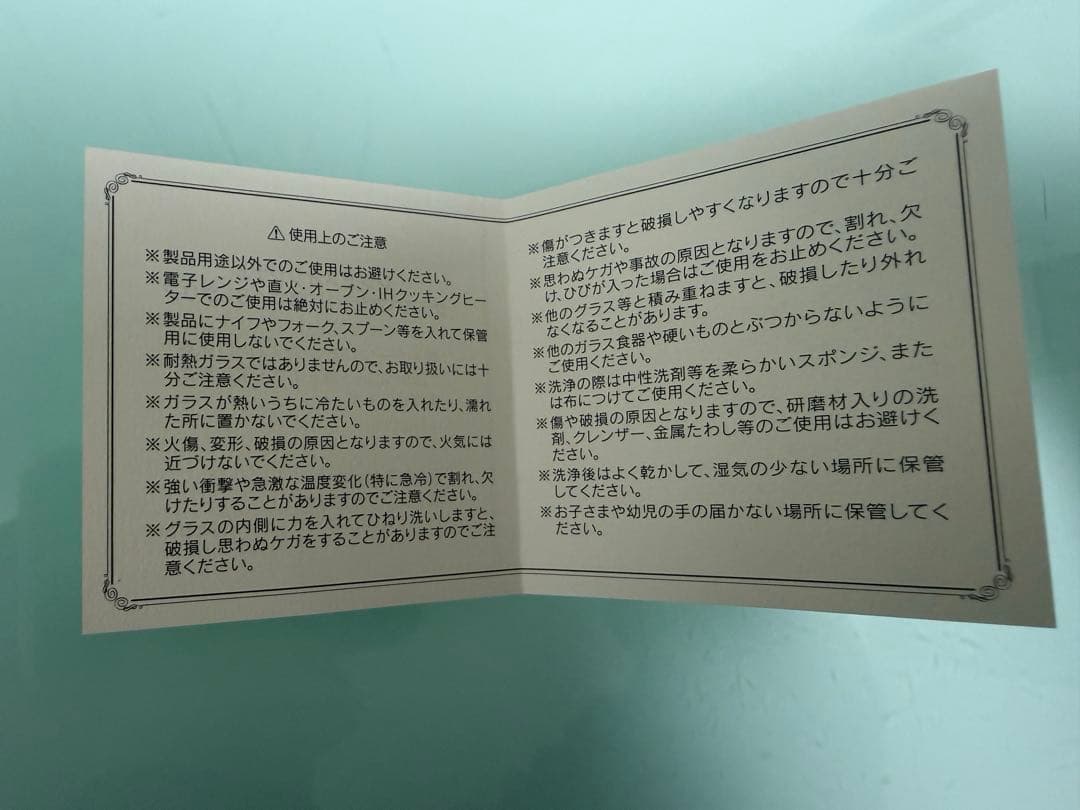 ⚠使用上のご注意
※製品用途以外でのご使用はお避けください。
※電子レンジや直火・オーブン・IHクッキングヒー
ターでのご使用は絶対にお止めください。
※製品にナイフやフォーク、スプーン等を入れて保管
用に使用しないでください。
※耐熱ガラスではありませんので、お取り扱いには十
分ご注意ください。
※ガラスが熱いうちに冷たいものを入れたり、濡れ
た所に置かないでください。
※火傷、変形、破損の原因となりますので、火気には
近づけないでください。
※強い衝撃や急激な温度変化(特に急冷)で割れ、欠
けたりすることがありますのでご注意ください。
※グラスの内側に力を入れてひねり洗いしますと、
破損し思わぬケガをすることがありますのでご注
意ください。
※傷がつきますと破損しやすくなりますので十分ご
注意ください。
※思わぬケガや事故の原因となりますので、割れ、欠
け、ひびが入った場合はご使用をお止めください。
※他のグラス等と積み重ねますと、破損したり外れ
なくなることがあります。
※他のガラス食器や硬いものとぶつからないように
ご使用ください。
※洗浄の際は中性洗剤等を柔らかいスポンジ、また
は布につけてご使用ください。
※傷や破損の原因となりますので、研磨材入りの洗
剤、クレンザー、金属たわし等のご使用はお避けく
ださい。
※洗浄後はよく乾かして、湿気の少ない場所に保管
してください。
※お子さまや幼児の手の届かない場所に保管してく
ださい。